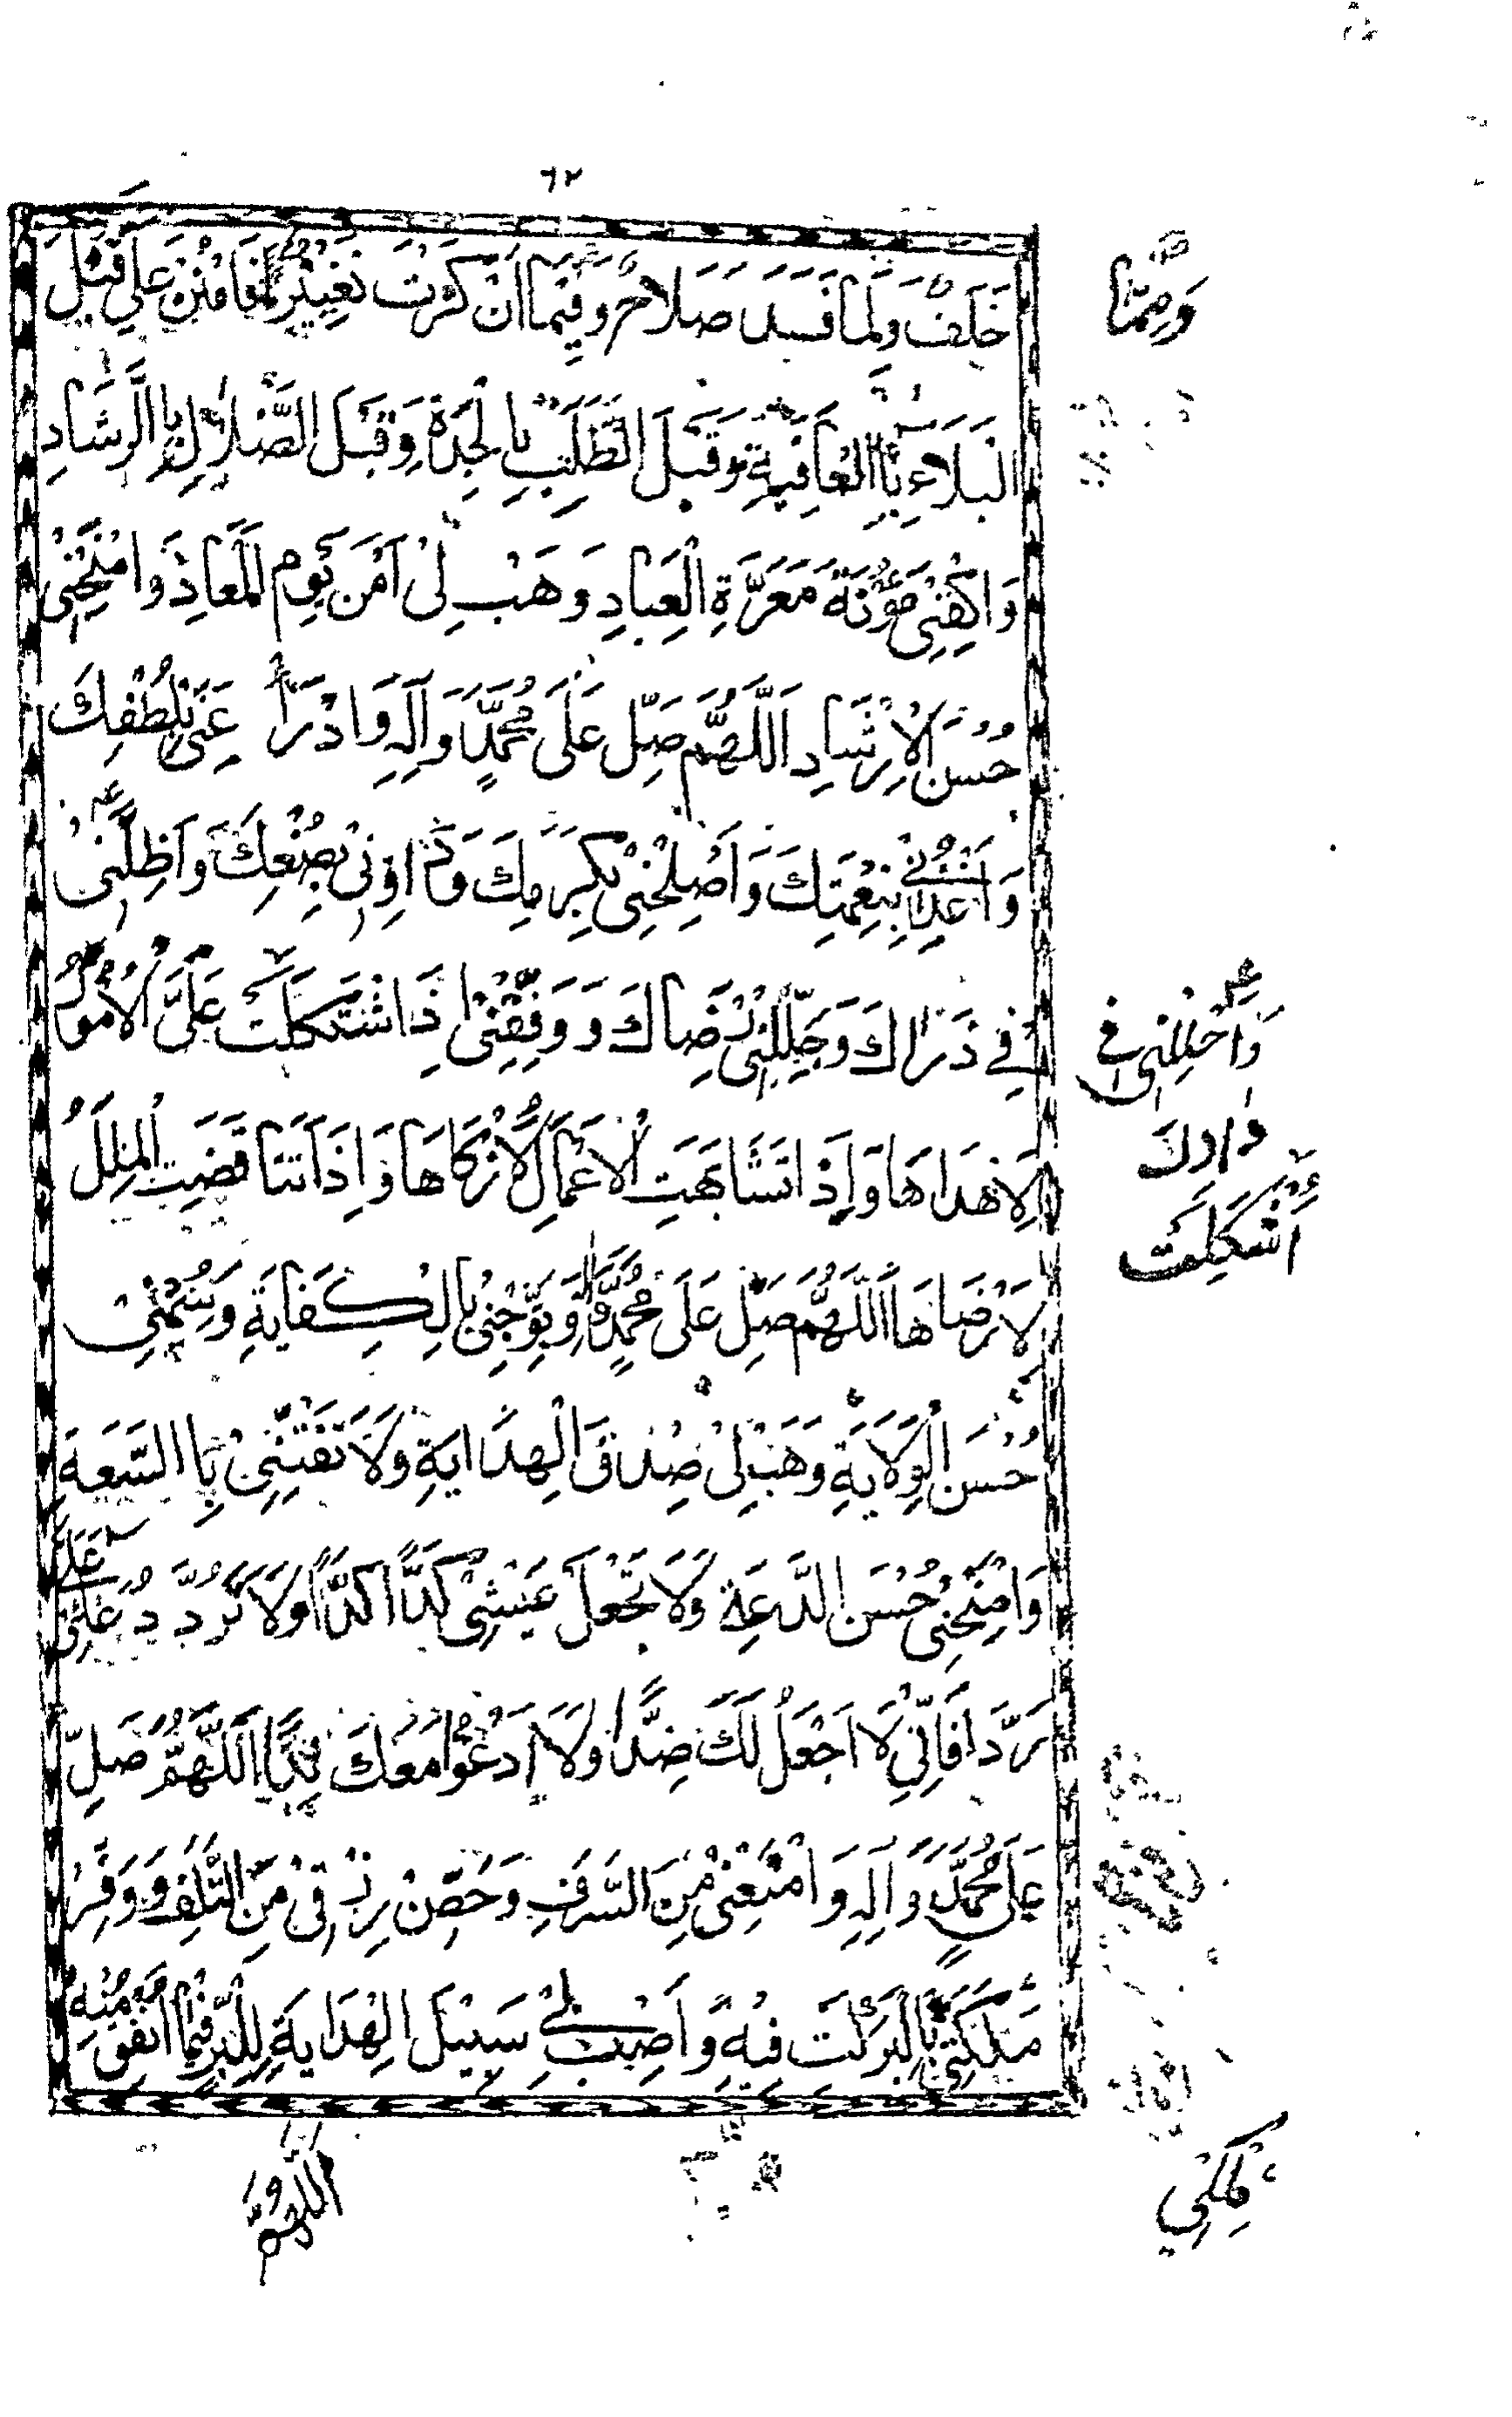 ٦٢
خَلَفٌ وَلِمَا فَسَدَ صَلَاحٌ وَفِيمَا اَنْكَرْتَ تَغْيِيْرٌ فَامْنُنْ عَلَيَّ قَبْلَ
وَمِمَّا
الْبَلَاءِ بِاالْعَافِيَةِ وَقَبْلَ الطَّلَبِ بِالْجِدَةِ وَقَبْلَ الضَّلَالِ بِاالرَّشَادِ
وَاكْفِنِيْ مَؤُنَةَ مَعَرَّةِ الْعِبَادِ وَهَبْ لِيْ اَمْنَ يَوْمِ الْمَعَادِ وَامْنَحْنِيْ
حُسْنَ الْاِرْشَادِ اَللَّهُمَّ صَلِّ عَلَى مُحَمَّدٍ وَآلِهِ وَادْرَأْ عَنِّيْ بِلُطْفِكَ
وَاغْذُنِيْ بِنِعْمَتِكَ وَاَصْلِحْنِيْ بِكَرَمِكَ وَدَاوِنِيْ بِصُنْعِكَ وَاَظِلَّنِيْ
فِيْ ذَرَاكَ وَجَلِّلْنِيْ رِضَاكَ وَ وَفِّقْنِيْ اِذَا اشْتَكَلَتْ عَلَيَّ الْاُمُوْرُ
وَاَحْلِلْنِيْ فِيْ
دَارِكَ
اَشْكَلَتْ
لِاَهْدَاهَا وَاِذَا تَشَابَهَتِ الْاَعْمَالُ لِاَزْكَاهَا وَاِذَا تَنَاقَضَتِ الْمِلَلُ
لِاَرْضَاهَا اَللَّهُمَّ صَلِّ عَلَى مُحَمَّدٍ وَآلِهِ وَتَوِّجْنِيْ بِالْكِفَايَةِ وَسُمْنِيْ
حُسْنَ الْوِلَايَةِ وَهَبْ لِيْ صِدْقَ الْهِدَايَةِ وَلَا تَفْتِنِّيْ بِاالسَّعَةِ
وَامْنَحْنِيْ حُسْنَ الدَّعَةِ وَلَا تَجْعَلْ عَيْشِيْ كَدًّا كَدًّا وَلَا تَرُدَّ دُعَائِيْ عَلَيَّ
رَدًّا فَاِنِّيْ لَا اَجْعَلُ لَكَ ضِدًّا وَلَا اَدْعُوْا مَعَكَ نِدًّا اَللَّهُمَّ صَلِّ
عَلَى مُحَمَّدٍ وَآلِهِ وَامْنَعْنِيْ مِنَ السَّرَفِ وَحَصِّنْ رِزْقِيْ مِنَ التَّلَفِ وَوَفِّرْ
مَلَكَتِيْ بِالْبَرَكَتِ فِيْهِ وَاَصِبْ بِيْ سَبِيْلَ الْهِدَايَةِ لِلْبِرِّ فِيْمَا اُنْفِقُ مِنْهُ
اللهم